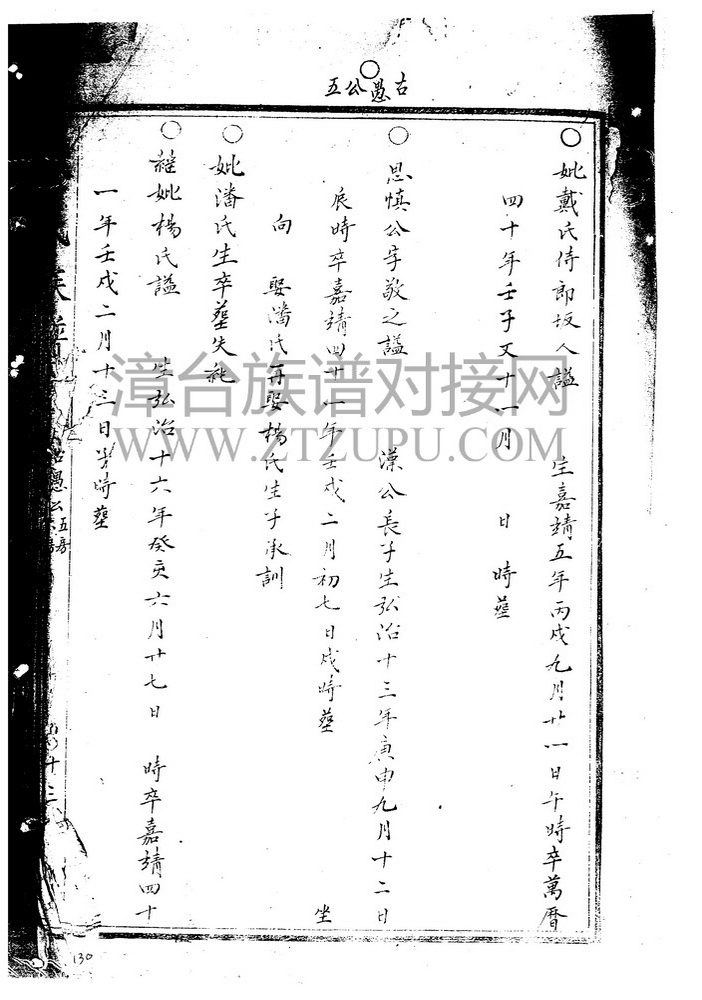 古愚公五
妣戴氏侍郎坂人諡 生嘉靖五年丙戌九月廿一日午時卒萬曆
四十年壬子又十一月 日 時葬
思慎公字敬之諡 漢公長子生弘治十三年庚申九月十二日
辰時卒嘉靖四十一年壬戌二月初七日戌時葬 坐
向 娶潘氏再娶楊氏生子承訓
妣潘氏生卒葬失紀
繼妣楊氏諡 生弘治十六年癸亥六月廿七日 時卒嘉靖四十
一年壬戌二月十三日 時葬
族譜
愚公五房
十三
130
漳台族谱对接网
WWW.ZTZUPU.COM